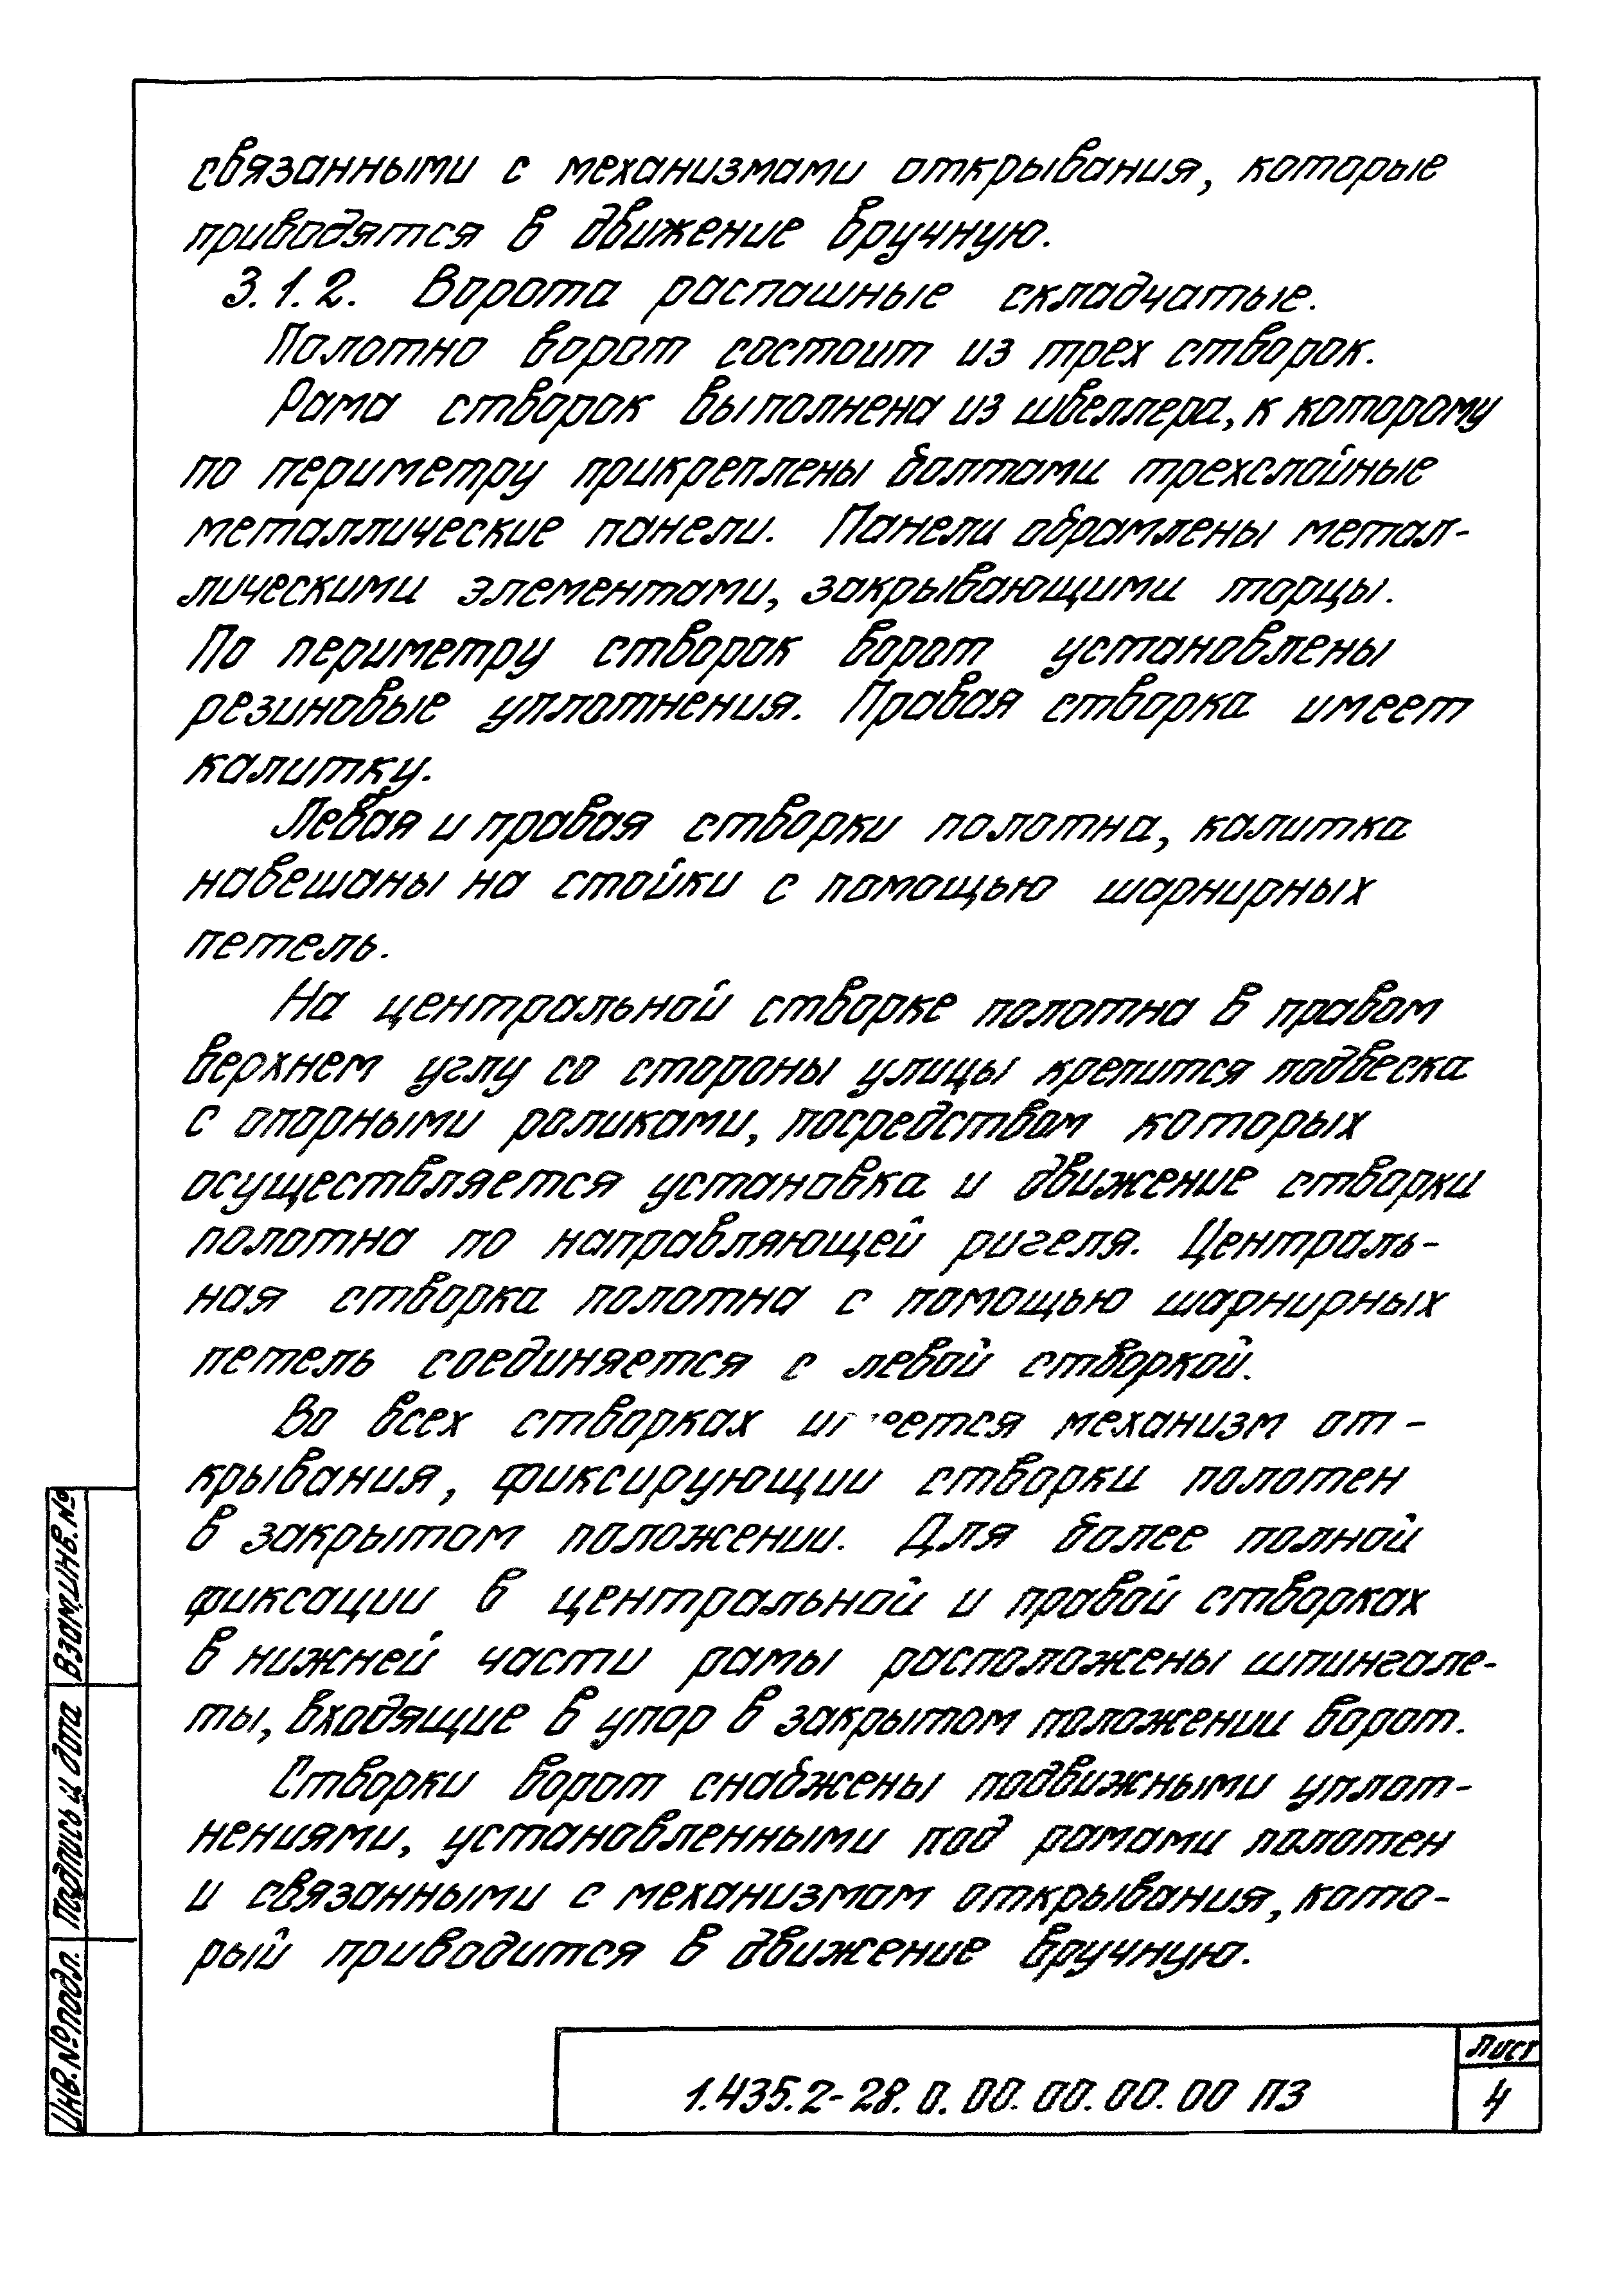 связанными с механизмами открывания, которые
приводятся в движение вручную.
3.1.2. Ворота распашные складчатые.
Полотно ворот состоит из трех створок.
Рама створок выполнена из швеллера, к которому
по периметру прикреплены болтами трехслойные
металлические панели. Панели обрамлены метал-
лическими элементами, закрывающими торцы.
По периметру створок ворот установлены
резиновые уплотнения. Правая створка имеет
калитку.
Левая и правая створки полотна, калитка
навешаны на стойки с помощью шарнирных
петель.
На центральной створке полотна в правом
верхнем углу со стороны улицы крепится подвеска
с опорными роликами, посредством которых
осуществляется установка и движение створки
полотна по направляющей ригеля. Централь-
ная створка полотна с помощью шарнирных
петель соединяется с левой створкой.
Во всех створках имеется механизм от-
крывания, фиксирующии створки полотен
в закрытом положении. Для более полной
фиксации в центральной и правой створках
в нижней части рамы расположены шпингале-
ты, входящие в упор в закрытом положении ворот.
Створки ворот снабжены подвижными уплот-
нениями, установленными под рамами полотен
и связанными с механизмом открывания, кото-
рый приводится в движение вручную.
Взам.инв.№
Подпись и дата
Инв.№ подл.
1.435.2-28.0.00.00.00.00 ПЗ
Лист
4